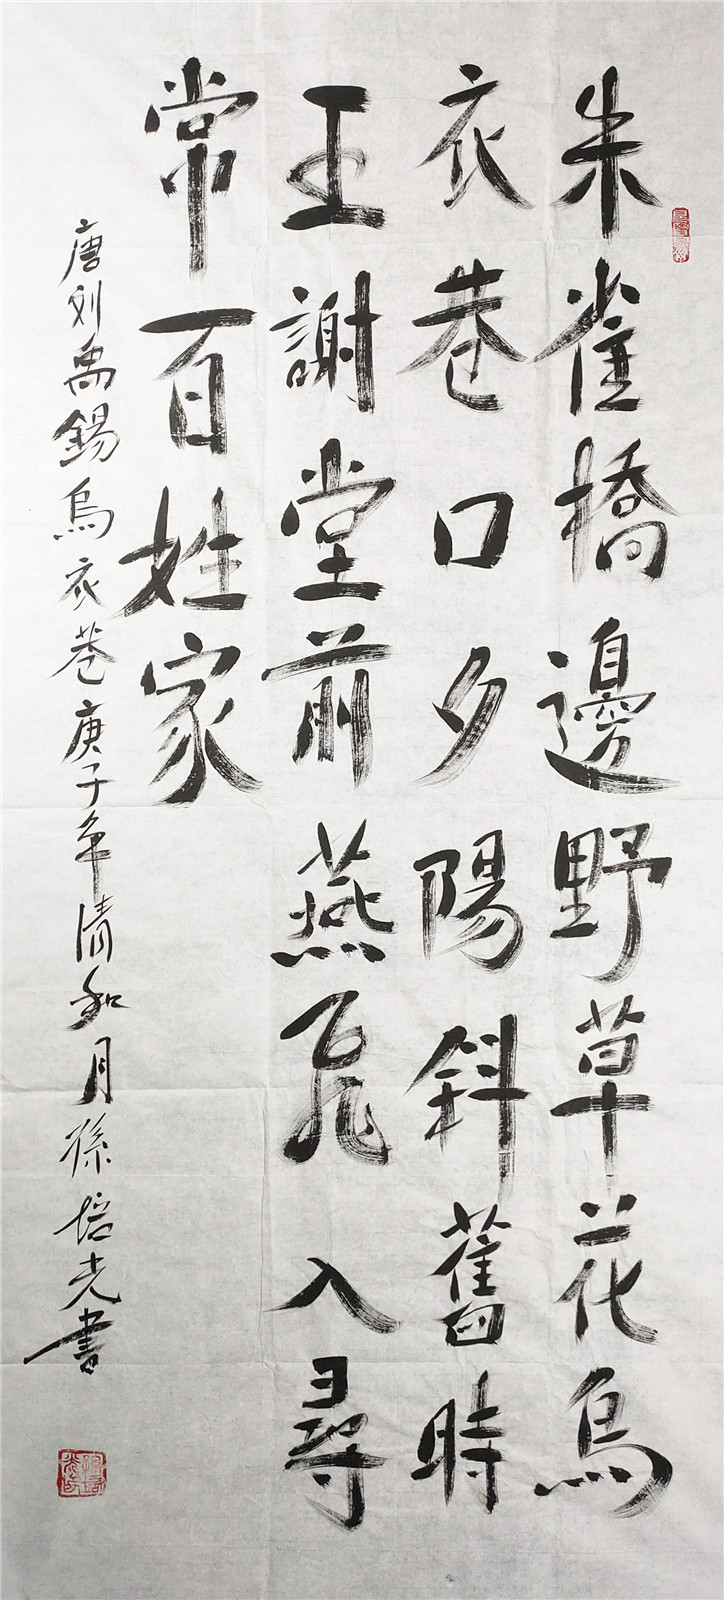 朱雀橋邊野草花烏
衣巷口夕陽斜舊時
王謝堂前燕飛入尋
常百姓家
唐刘禹錫烏衣巷庚子年清和月孫培光書